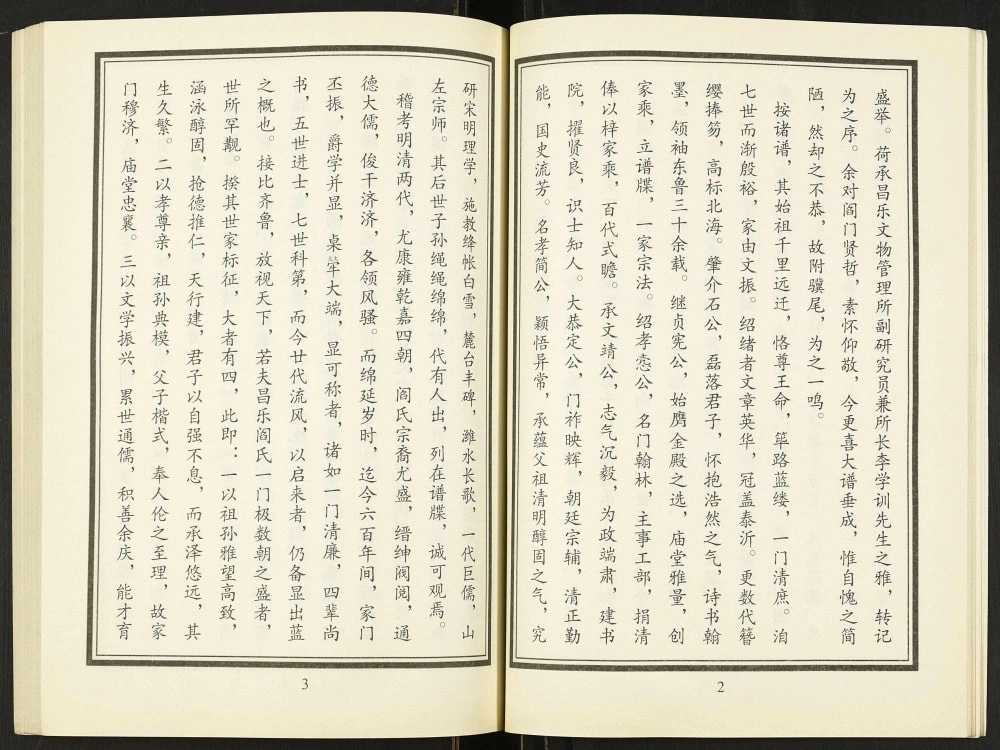 盛举。荷承昌乐文物管理所副研究员兼所长李学训先生之雅，转记
为之序。余对阎门贤哲，素怀仰敬，今更喜大谱垂成，惟自愧之简
陋，然却之不恭，故附骥尾，为之一鸣。
按诸谱，其始祖千里远迁，恪尊王命，筚路蓝缕，一门清庶。洎
七世而渐殷裕，家由文振。绍绪者文章英华，冠盖泰沂。更数代簪
缨捧笏，高标北海。肇介石公，磊落君子，怀抱浩然之气，诗书翰
墨，领袖东鲁三十余载。继贞宪公，始膺金殿之选，庙堂雅量，创
家乘，立谱牒，一家宗法。绍孝悫公，名门翰林，主事工部，捐清
俸以梓家乘，百代式瞻。承文靖公，志气沉毅，为政端肃，建书
院，擢贤良，识士知人。大恭定公，门祚映辉，朝廷宗辅，清正勤
能，国史流芳。名孝简公，颖悟异常，承蕴父祖清明醇固之气，究
2
研宋明理学，施教绛帐白雪，麓台丰碑，潍水长歌，一代巨儒，山
左宗师。其后世子孙绳绳绵绵，代有人出，列在谱牒，诚可观焉。
稽考明清两代，尤康雍乾嘉四朝，阎氏宗裔尤盛，缙绅阀阅，通
德大儒，俊干济济，各领风骚。而绵延岁时，迄今六百年间，家门
丕振，爵学并显，荦大端，显可称者，诸如一门清廉，四辈尚
书，五世进士，七世科第，而今廿代流风，以启来者，仍备显出蓝
之概也。接比齐鲁，放视天下，若夫昌乐阎氏一门极数朝之盛者，
世所罕觏。揆其世家标征，大者有四，此即：一以祖孙雅望高致，
涵泳醇固，抢德推仁，天行建，君子以自强不息，而承泽悠远，其
生久繁。二以孝尊亲，祖孙典模，父子楷式，奉人伦之至理，故家
门穆济，庙堂忠襄。三以文学振兴，累世通儒，积善余庆，能才育
3